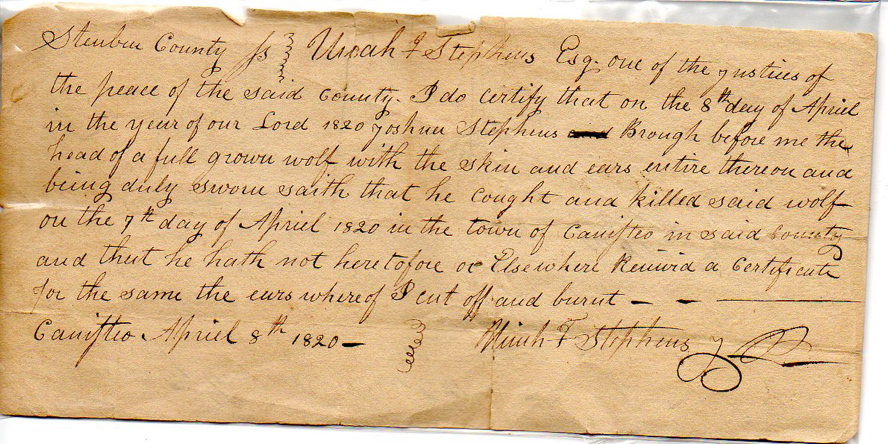 Steuben County ss Uriah F Stephens Esq. one of the justices of
the peace of the said County. I do certify that on the 8th day of Apriel
in the year of our Lord 1820 Joshua Stephens Brough before me the
head of a full grown wolf with the skin and ears entire thereon and
being duly sworn saith that he cought and killed said wolf
on the 7th day of Apriel 1820 in the town of Canisteo in said County
and that he hath not heretofore or Elsewhere Receivd a Certificate
for the same the ears whereof I cut off and burnt — — —
Canisteo Apriel 8th 1820 — Uriah F Stephens